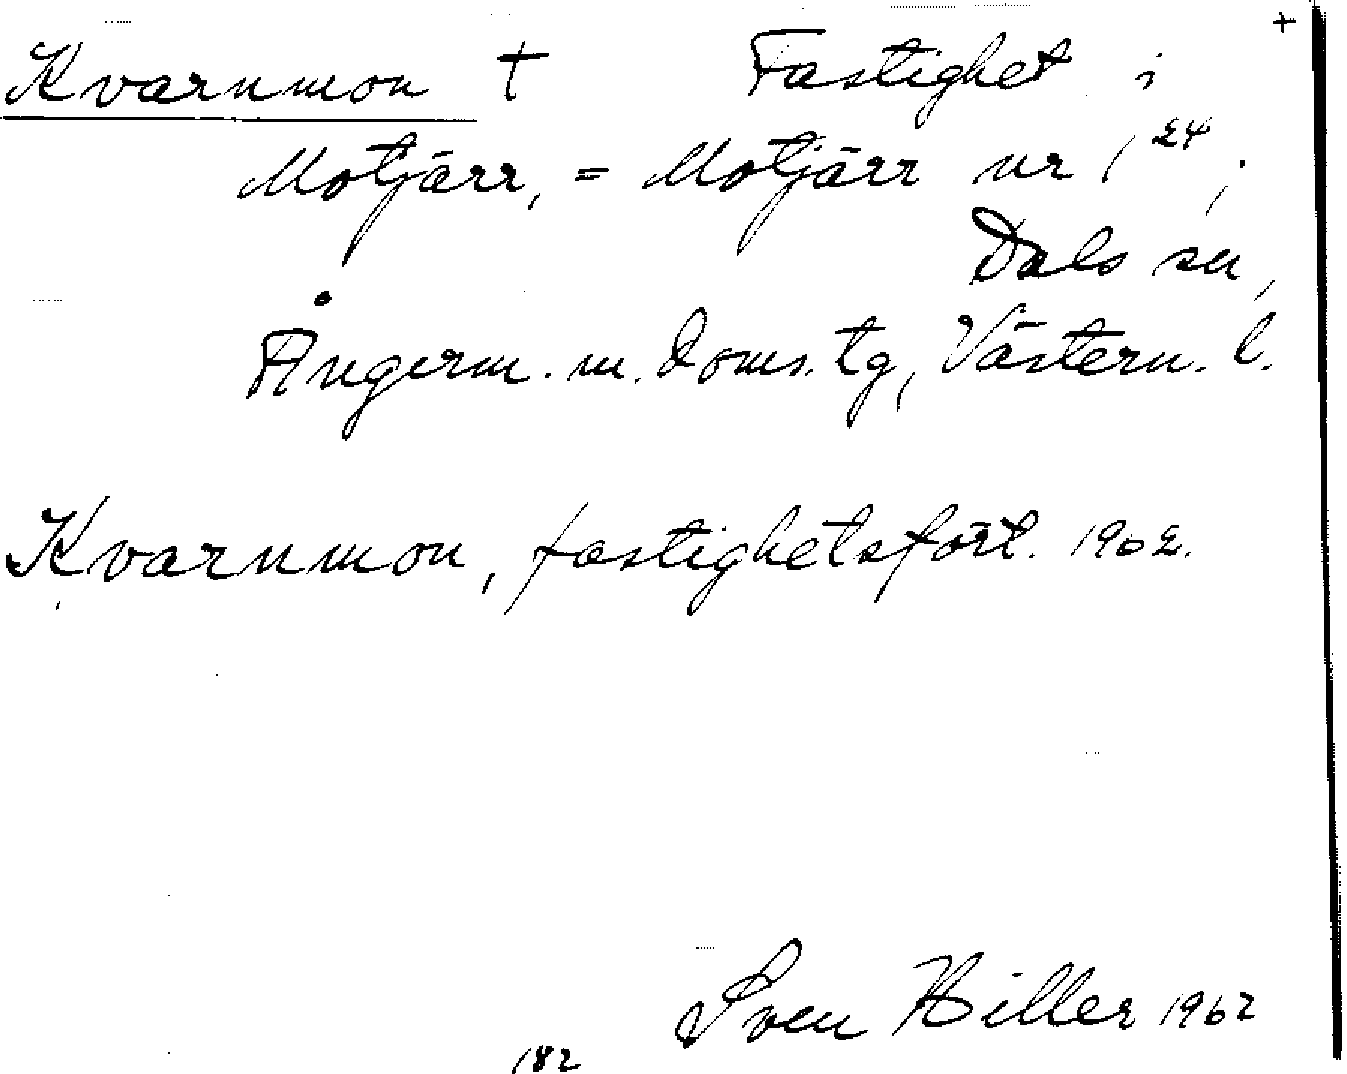 +
Kvarnmon † Fastighet i
Motjärr, = Motjärr nr 1²⁴,
Dals sn,
Ångerm. m. doms. tg, Västern. l.
Kvarnmon, fastighetsfört. 1962.
Sven Hiller 1962
182